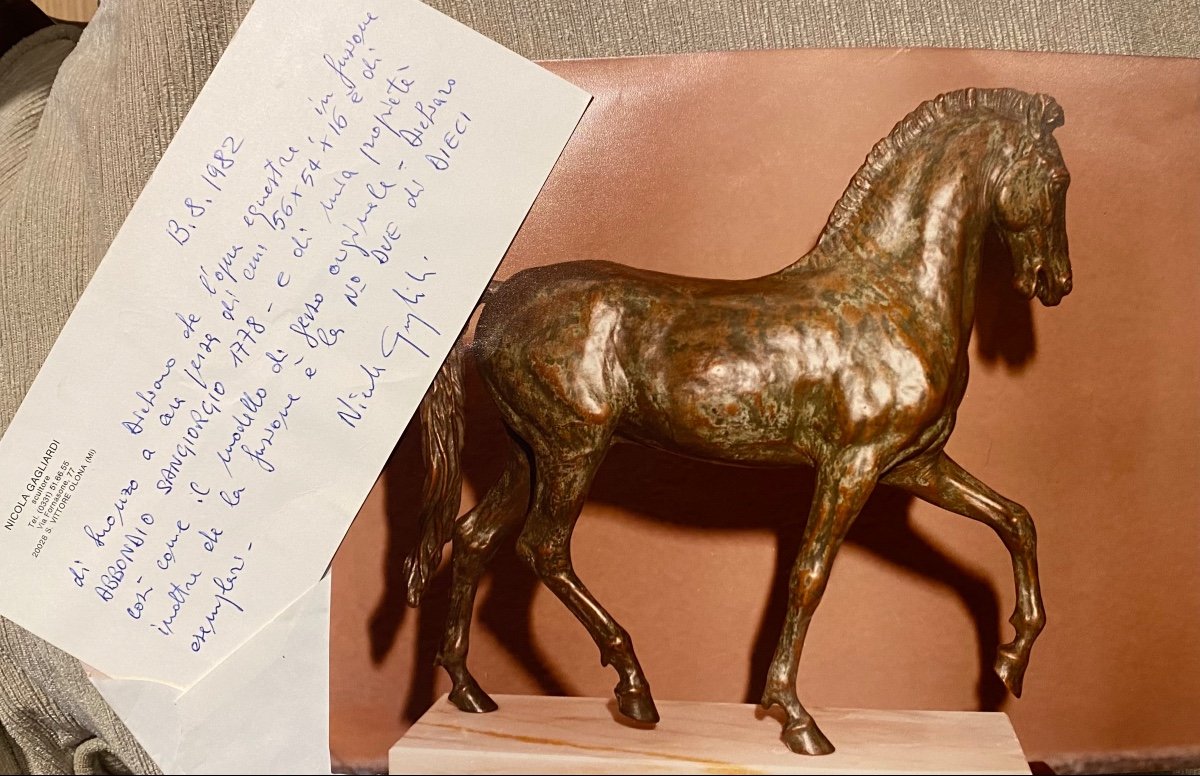 NICOLA GAGLIARDI
scultore
Tel. (0331) 51.66.55
Via Fornasone, 77
20028 S. VITTORE OLONA (MI)
13.8.1982
Dichiaro che l'opera equestre, in fusione
di bronzo a cera persa di cmi 56x54x16 è di
ABBONDIO SANGIORGIO 1778 - e di mia proprietà
così come il modello di gesso originale - Dichiaro
inoltre che la fusione è la No DUE di DIECI
esemplari -
Nicola Gagliardi.